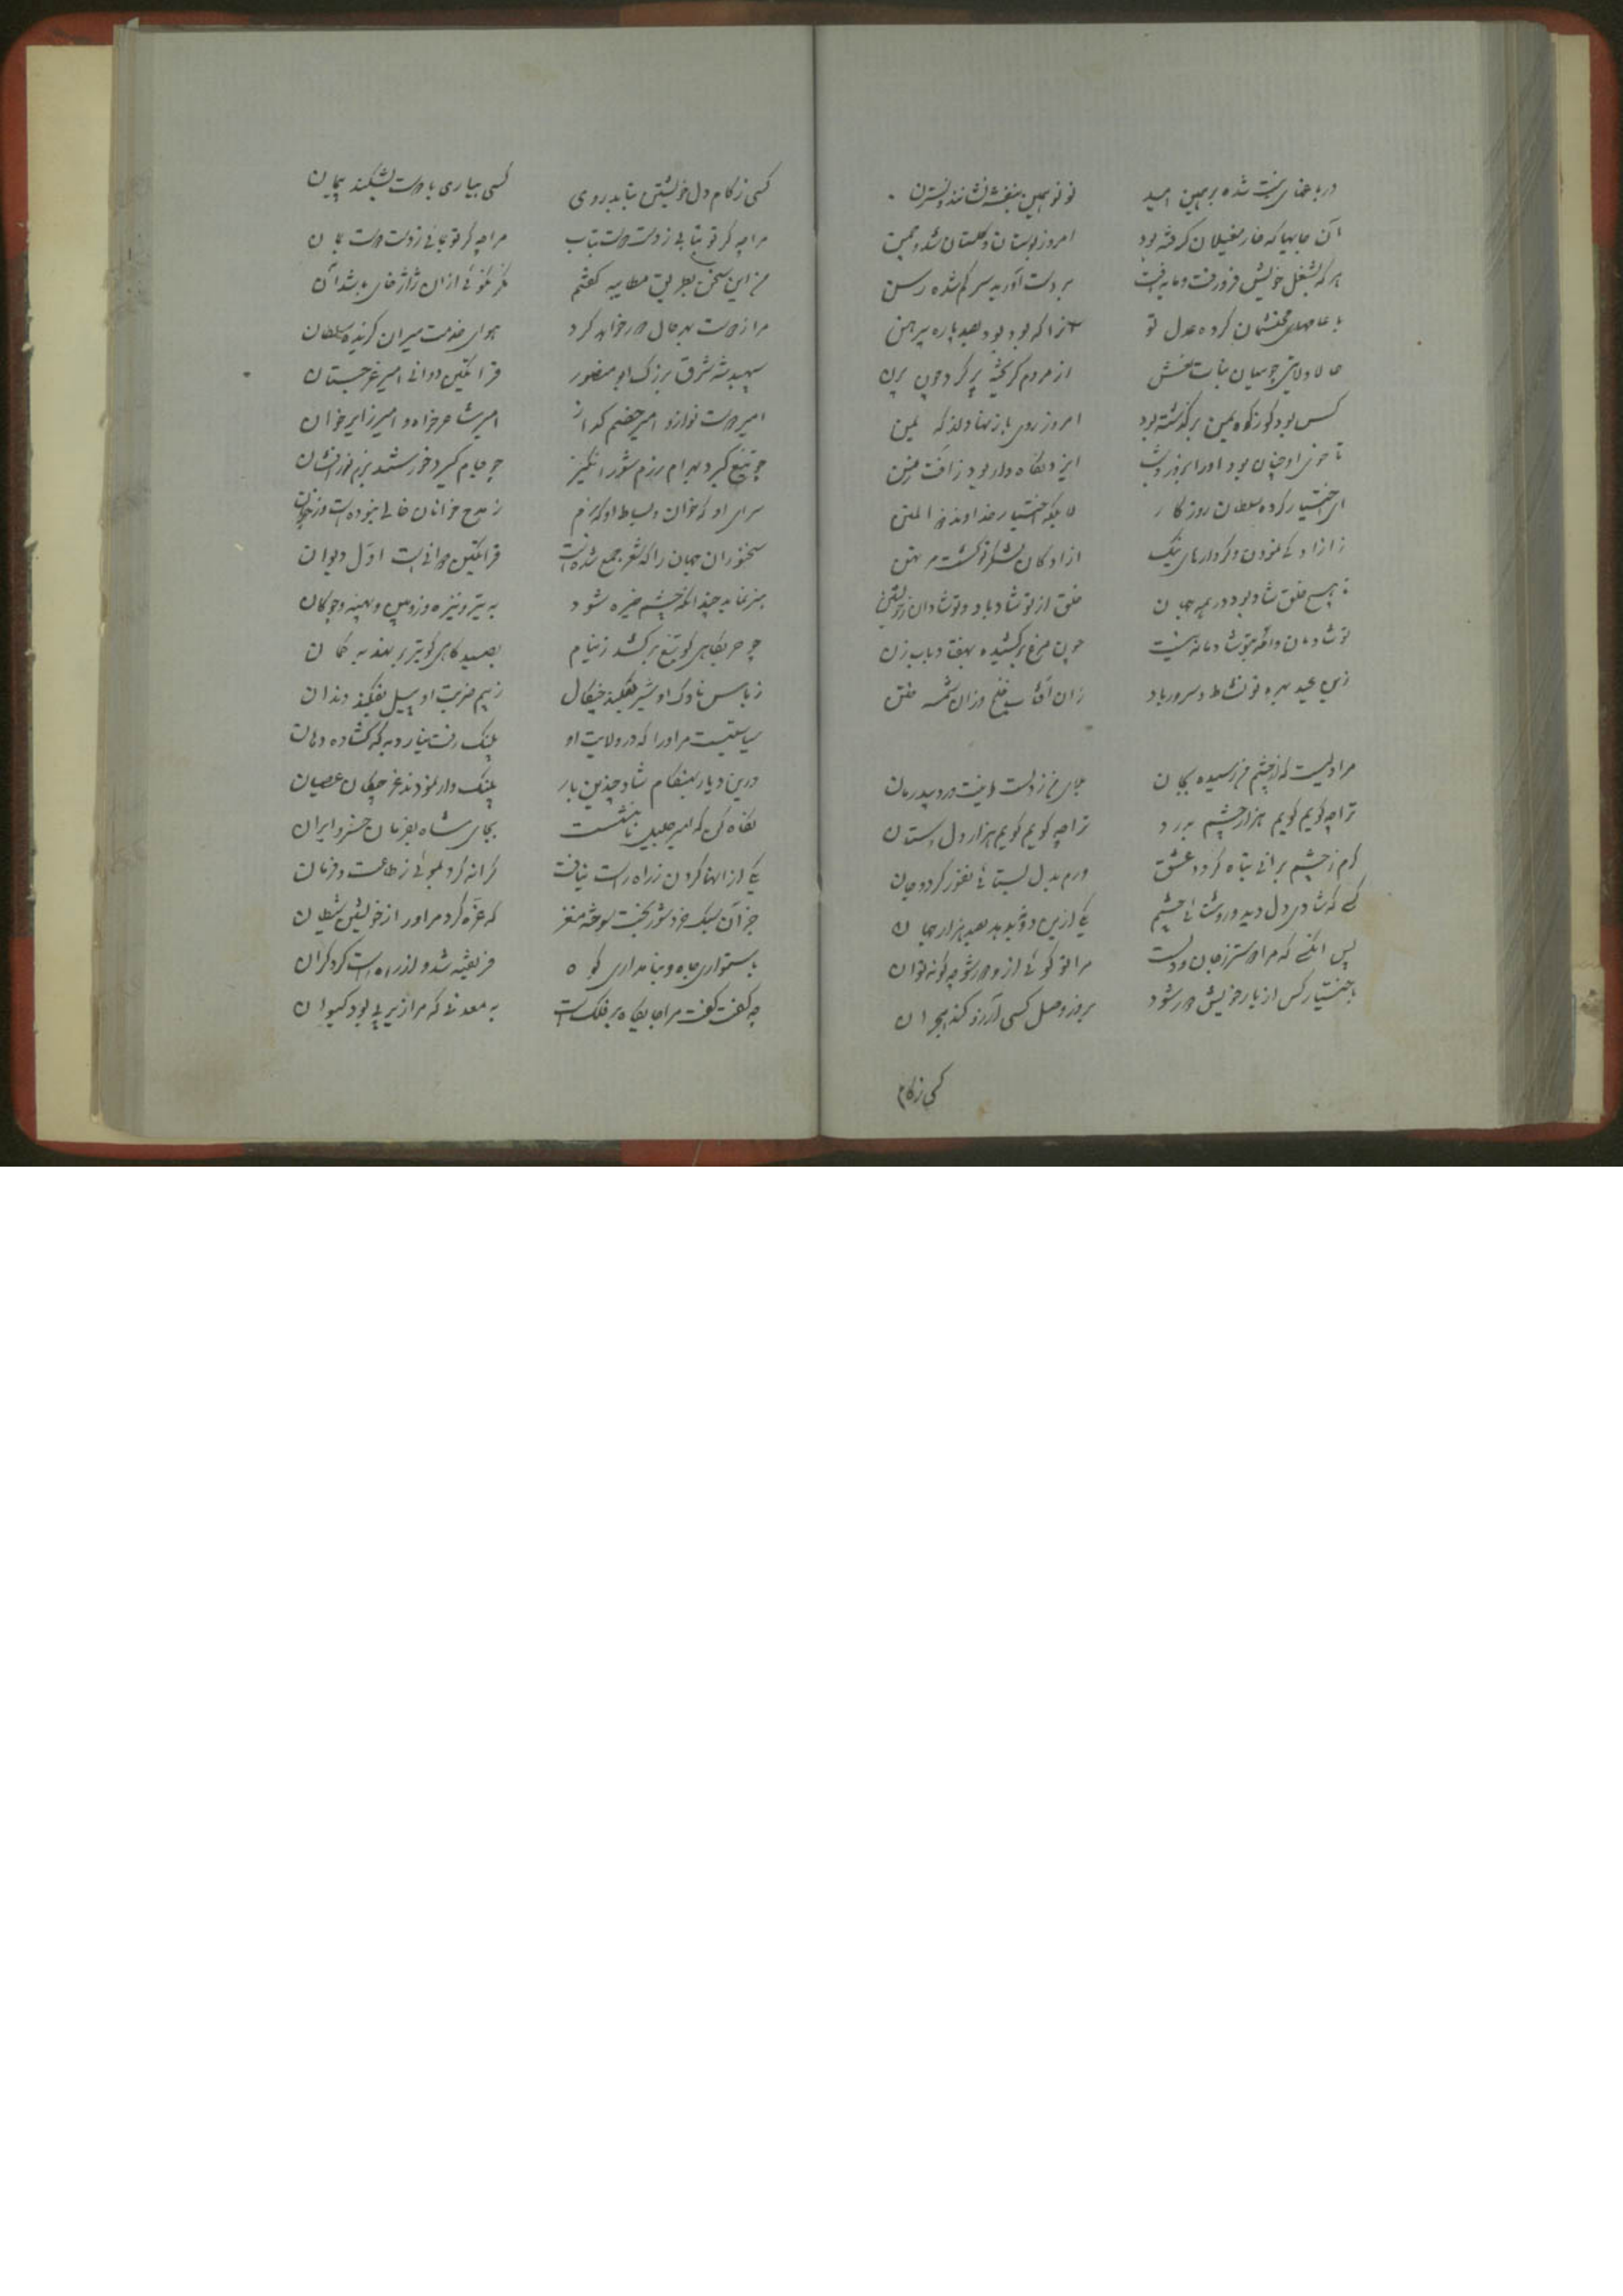 درباغهای پست شده بر همین امید نو نو همین بنفشه نشانند و نسترن
آن جایها که خار مغیلان گرفته بود امروز بوستان و گلستان شد و چمن
هر که بشغل خویش فرو رفت و مایه یافت بر دست آورید سر گم شده رسن
با عامهای محتشمان کرده عدل تو آنرا که بود بود بصد پاره پیرهن
از مردم گریخته پر کرد چون پرن
کس بود کو ز کوه بمین برگذشته بود امروز روی باز نهادند که بمین
تا خوی او چنان بود او را بروز و شب ایزد نگاه دار بود ز آفت و فتن
ای اختیار کرده سلطان روزگار لا بلکه اختیار خداوند ذو المنن
ز آزادگی نمودن و کردارهای نیک آزادگان بشکر تو گشتند مرتهن
نه هیچ خلق شاد بود در همه جهان خلق از تو شاد باد و تو شادان ز خویشتن
تو شادمان و آنکه بتو شادمانه نیست چون مرغ برکشیده بهفتاد باب زن
زین عید بهره تو نشاط و سرور باد زان آفتاب خلخ وزان شمسه ختن
مرا دلیست که از چشم بد رسیده بجان بلای من ز دلست اینت درد بیدرمان
ترا چه گویم گویم هزار چشم بدرد ترا چه گویم گویم هزار دل بستان
کرم ز چشم برانی تباه کردد عشق ورم بدل بستانی نفور کردد جان
کسی که شادی دل دید و روشنائی چشم یکی ازین دو بندهد بصد هزار جهان
پس آنکسی که مرا دوستر ز جان و دلست مرا تو گوئی ازو دور شو چگونه توان
باختیار کس از یار خویش دور شود بروز وصل کسی آرزو کند هجران
کسی ز کام
کسی ز کام دل خویشتن بتابد روی کسی بیاری با دوست بشکند پیمان
مرا چه گر تو بتابی ز دوست دوست بتاب مرا چه گر تو بمانی ز دوست دوست بمان
من این سخن بطریق مطایبه گفتم مگر نگوئی ازان ژاژ خای باشد آن
مرا ز دوست بهر حال دور خواهد کرد هوای خدمت میران گزیده سلطان
سپهبد شه شرق بزرگ ابو منصور قراتکین دوانی امیر غرجستان
امیر دوست نواز و امیر خصم گداز امیر شاعر خواه و امیر زایر خوان
چو تیغ گیرد بهرام رزم شور انگیز چو جام گیرد خورشید بزم نور افشان
سرای او که خوان و بساط او که بزم ز مدح خوانان خالی نبوده است و ز مهمان
سخنوران جهان را که شعر جمع شده است قراتکین دوانیست اول دیوان
هنر نماید چندانکه چشم خیره شود به تیر و نیزه و زوبین و پهنه و چوگان
چو حربگاهی کو تیغ برکشد ز نیام بصیدگاهی کو تیر برنهد به کمان
ز باس ناوک او شیر بفکند چنگال ز بیم ضربت او پیل بفکند دندان
سیاستیست مر او را که در ولایت او پلنگ رفت نیارد مگر گشاده دهان
درین دیار بهنگام شار چندین بار پلنگ وار نمودند غرچگان عصیان
نگاه کن که امیر جلیل تا بنشست بجای شاه بفرمان خسرو ایران
یکی از آنها گردن ز راه راست نیافت کرانه کرد بموئی ز طاعت و فرمان
جز آن سبک خرد شوربخت سوخته مغز که غره کرد مر او را ز خویشتن شیطان
باستواری جاه و بنامداری کوه فریفته شد و از راه راست کرد کران
چه گفت گفت مرا جایگاه بر فلک است به معدنی که مرا زیر پی بود کیوان